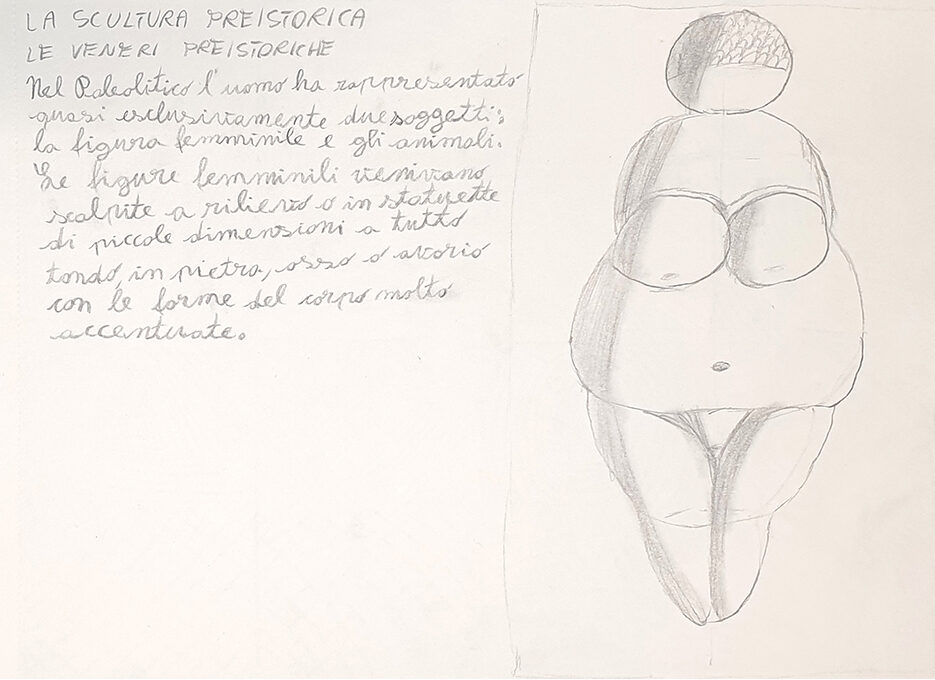 LA SCULTURA PREISTORICA
LE VENERI PREISTORICHE
Nel Paleolitico l'uomo ha rappresentato
quasi esclusivamente due soggetti:
la figura femminile e gli animali.
Le figure femminili venivano
scolpite a rilievo o in statuette
di piccole dimensioni a tutto
tondo, in pietra, osso o avorio
con le forme del corpo molto
accentuate.